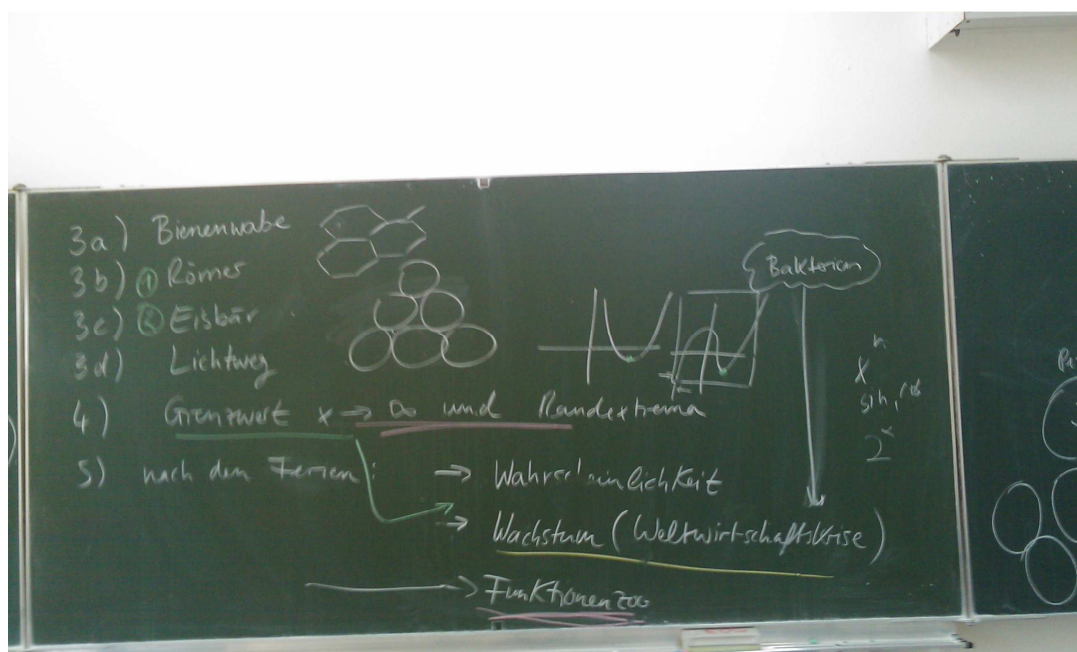 3a) Bienenwabe
3b) ① Römer
3c) ② Eisbär
3d) Lichtweg
4) Grenzwert x → ∞ und Randextrema
5) nach den Ferien: → Wahrscheinlichkeit
→ Wachstum (Weltwirtschaftskrise)
→ Funktionenzoo
Bakterien
xⁿ
sin, cos
2ˣ